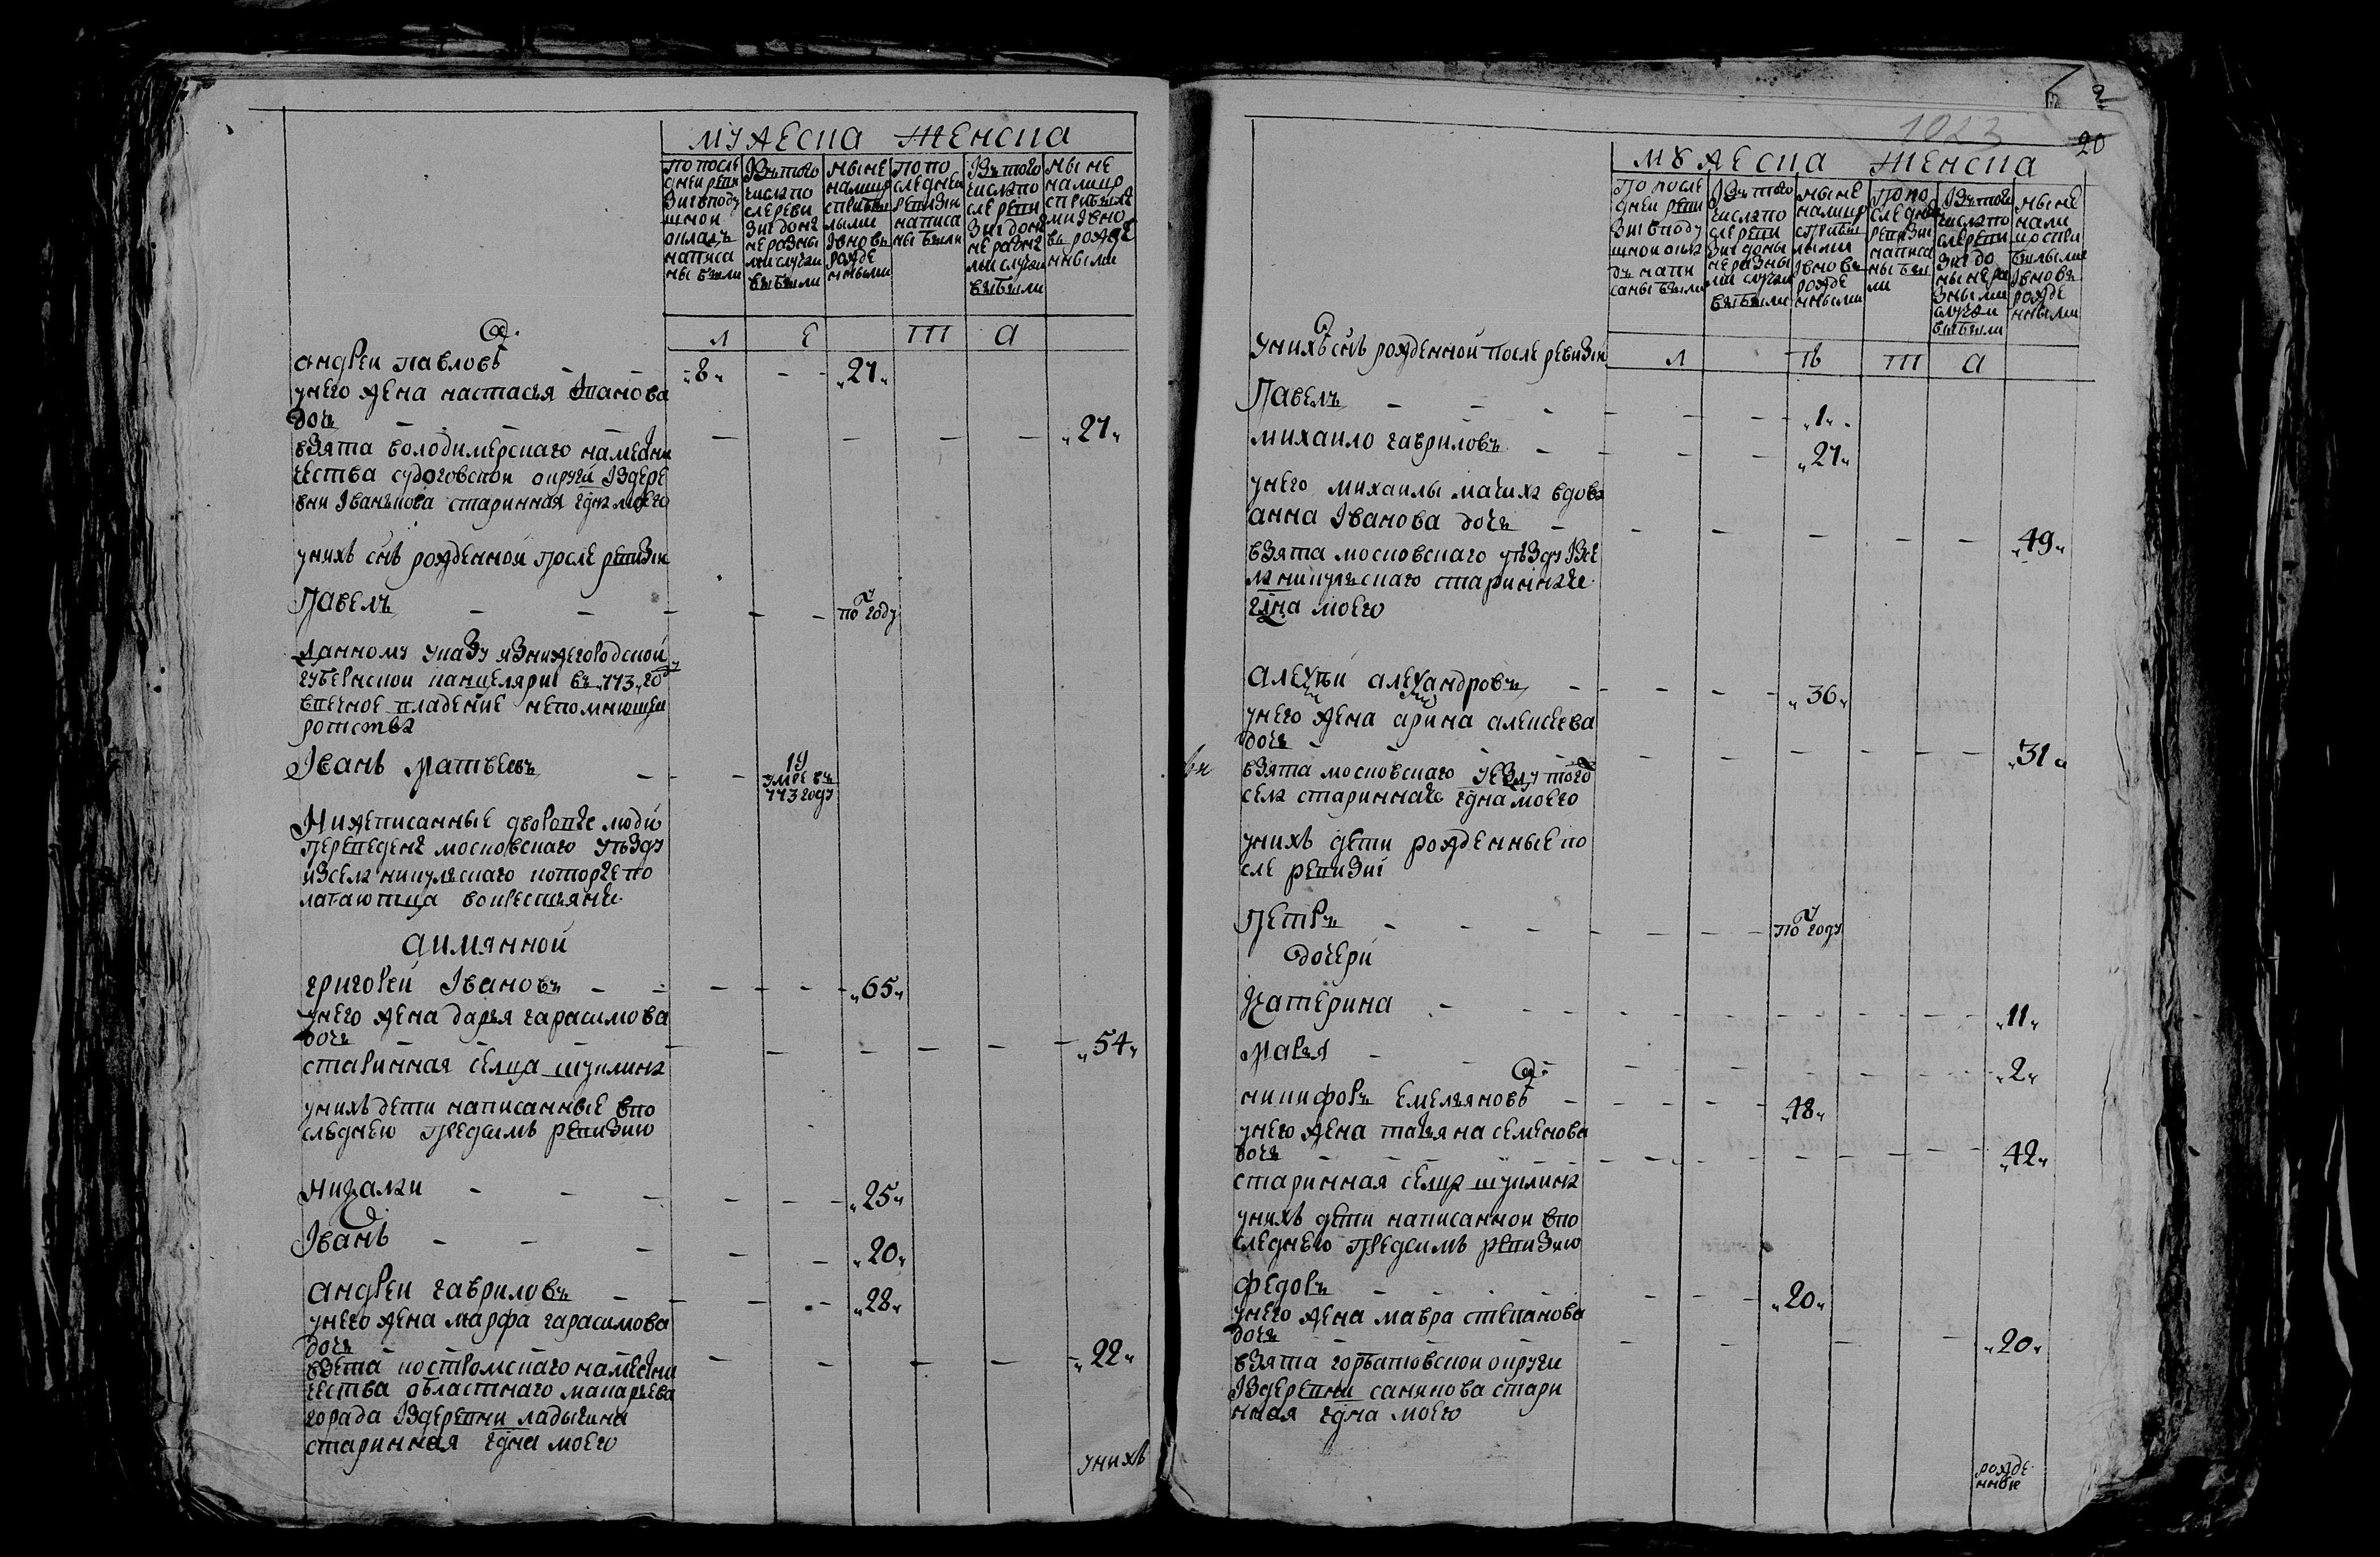 мужеска женска
по после
дней реви
зиі вподу
шной
окладъ
написа
ны были
Івъ того
числа по
сле реви
зиі доне
не разны
ми случаи
выбыли
ныне
налицо
с прибы
лыми
І вновь
рожде
нными
по по
следней
ревизіи
написа
ны были
Івъ того
числа по
сле реви
зиі доны
не разны
ми случаи
выбыли
ныне
налицо
с прибылы
ми І вно
въ рожде
нными
л е т а
андрей павловъ - - „8„ - - „27„
унего жена настасья
дочь - - - - - - - „27„
взята володимерскаго намесни
чества судоговской округи Іздере
вни Іванькова старинная гдна моего
унихъ снъ рожденной после ревизіи
Павелъ - - - - - по году
Данному указу изнижегородской
губернской канцеляриі въ „773„ году
вечное владение непомнющей
ротства
Іванъ матвеевъ - - - 19
умре въ
773 году
Нижеписанные дворовые люди
переведены московскаго уѣзду
изсела никульскаго которые по
лагаютца во крестьяне
а имянной
григорей Івановъ - - - - - „65„
унего жена дарья гарасимова
дочь - - - - - - - „54„
старинная селца шуклина
унихъ дети написанные впо
следнею пред симъ ревизию
Никалаи - - - - - „25„
Іванъ - - - - - „20„
андрей гавриловъ - - - - „28„
унего жена марфа гарасимова
дочь - - - - - „22„
взета костромскаго намесни
чества областнаго макарьева
горада Іздеревни ладыгина
старинная гдна моего
унихъ
1023
2
20
мужеска женска
по после
дней реви
зиі вподу
шной окла
дъ напи
саны были
Івъ того
числа по
сле реви
зиі доны
не разны
ми случаи
выбыли
ныне
налицо
с прибы
лыми
І вновь
рожде
нными
по по
следней
ревизиі
написа
ны бы
ли
Івъ того
числа по
сле реви
зиі до
ныне ра
зными
случаи
выбыли
ныне
нали
цо с при
былыми
І вновь
рожде
нными
л е т а
унихъ снъ рожденной после ревизіи
Павелъ - - - - - - „1„
михаило гавриловъ - - - - „27„
унего михаилы мачиха вдова
анна Іванова дочь - - - - - - „49„
взята московскаго уѣзду Ізсе
ла никульскаго старинная
гдна моего
алексей александровъ - - - - „36„
унего жена арина алексеева
дочь - - - - - - - „31„
взята московскаго уезду того
села старинная гдна моего
унихъ дети рожденные по
сле ревизиі
Петръ - - - - - - по году
дочери
Катерина - - - - - - - - „11„
Марья - - - - - - - „2„
никифоръ Емельяновъ - - - - „48„
унего жена татьяна семенова
дочь - - - - - - - „42„
старинная селца шуклина
унихъ дети написанной впо
следнею пред симъ ревизию
федоръ - - - - - - „20„
унего жена мавра степанова
дочь - - - - - „20„
взята горбатовской округи
Іздеревни санякова стари
нная гдна моего
рожде
нные